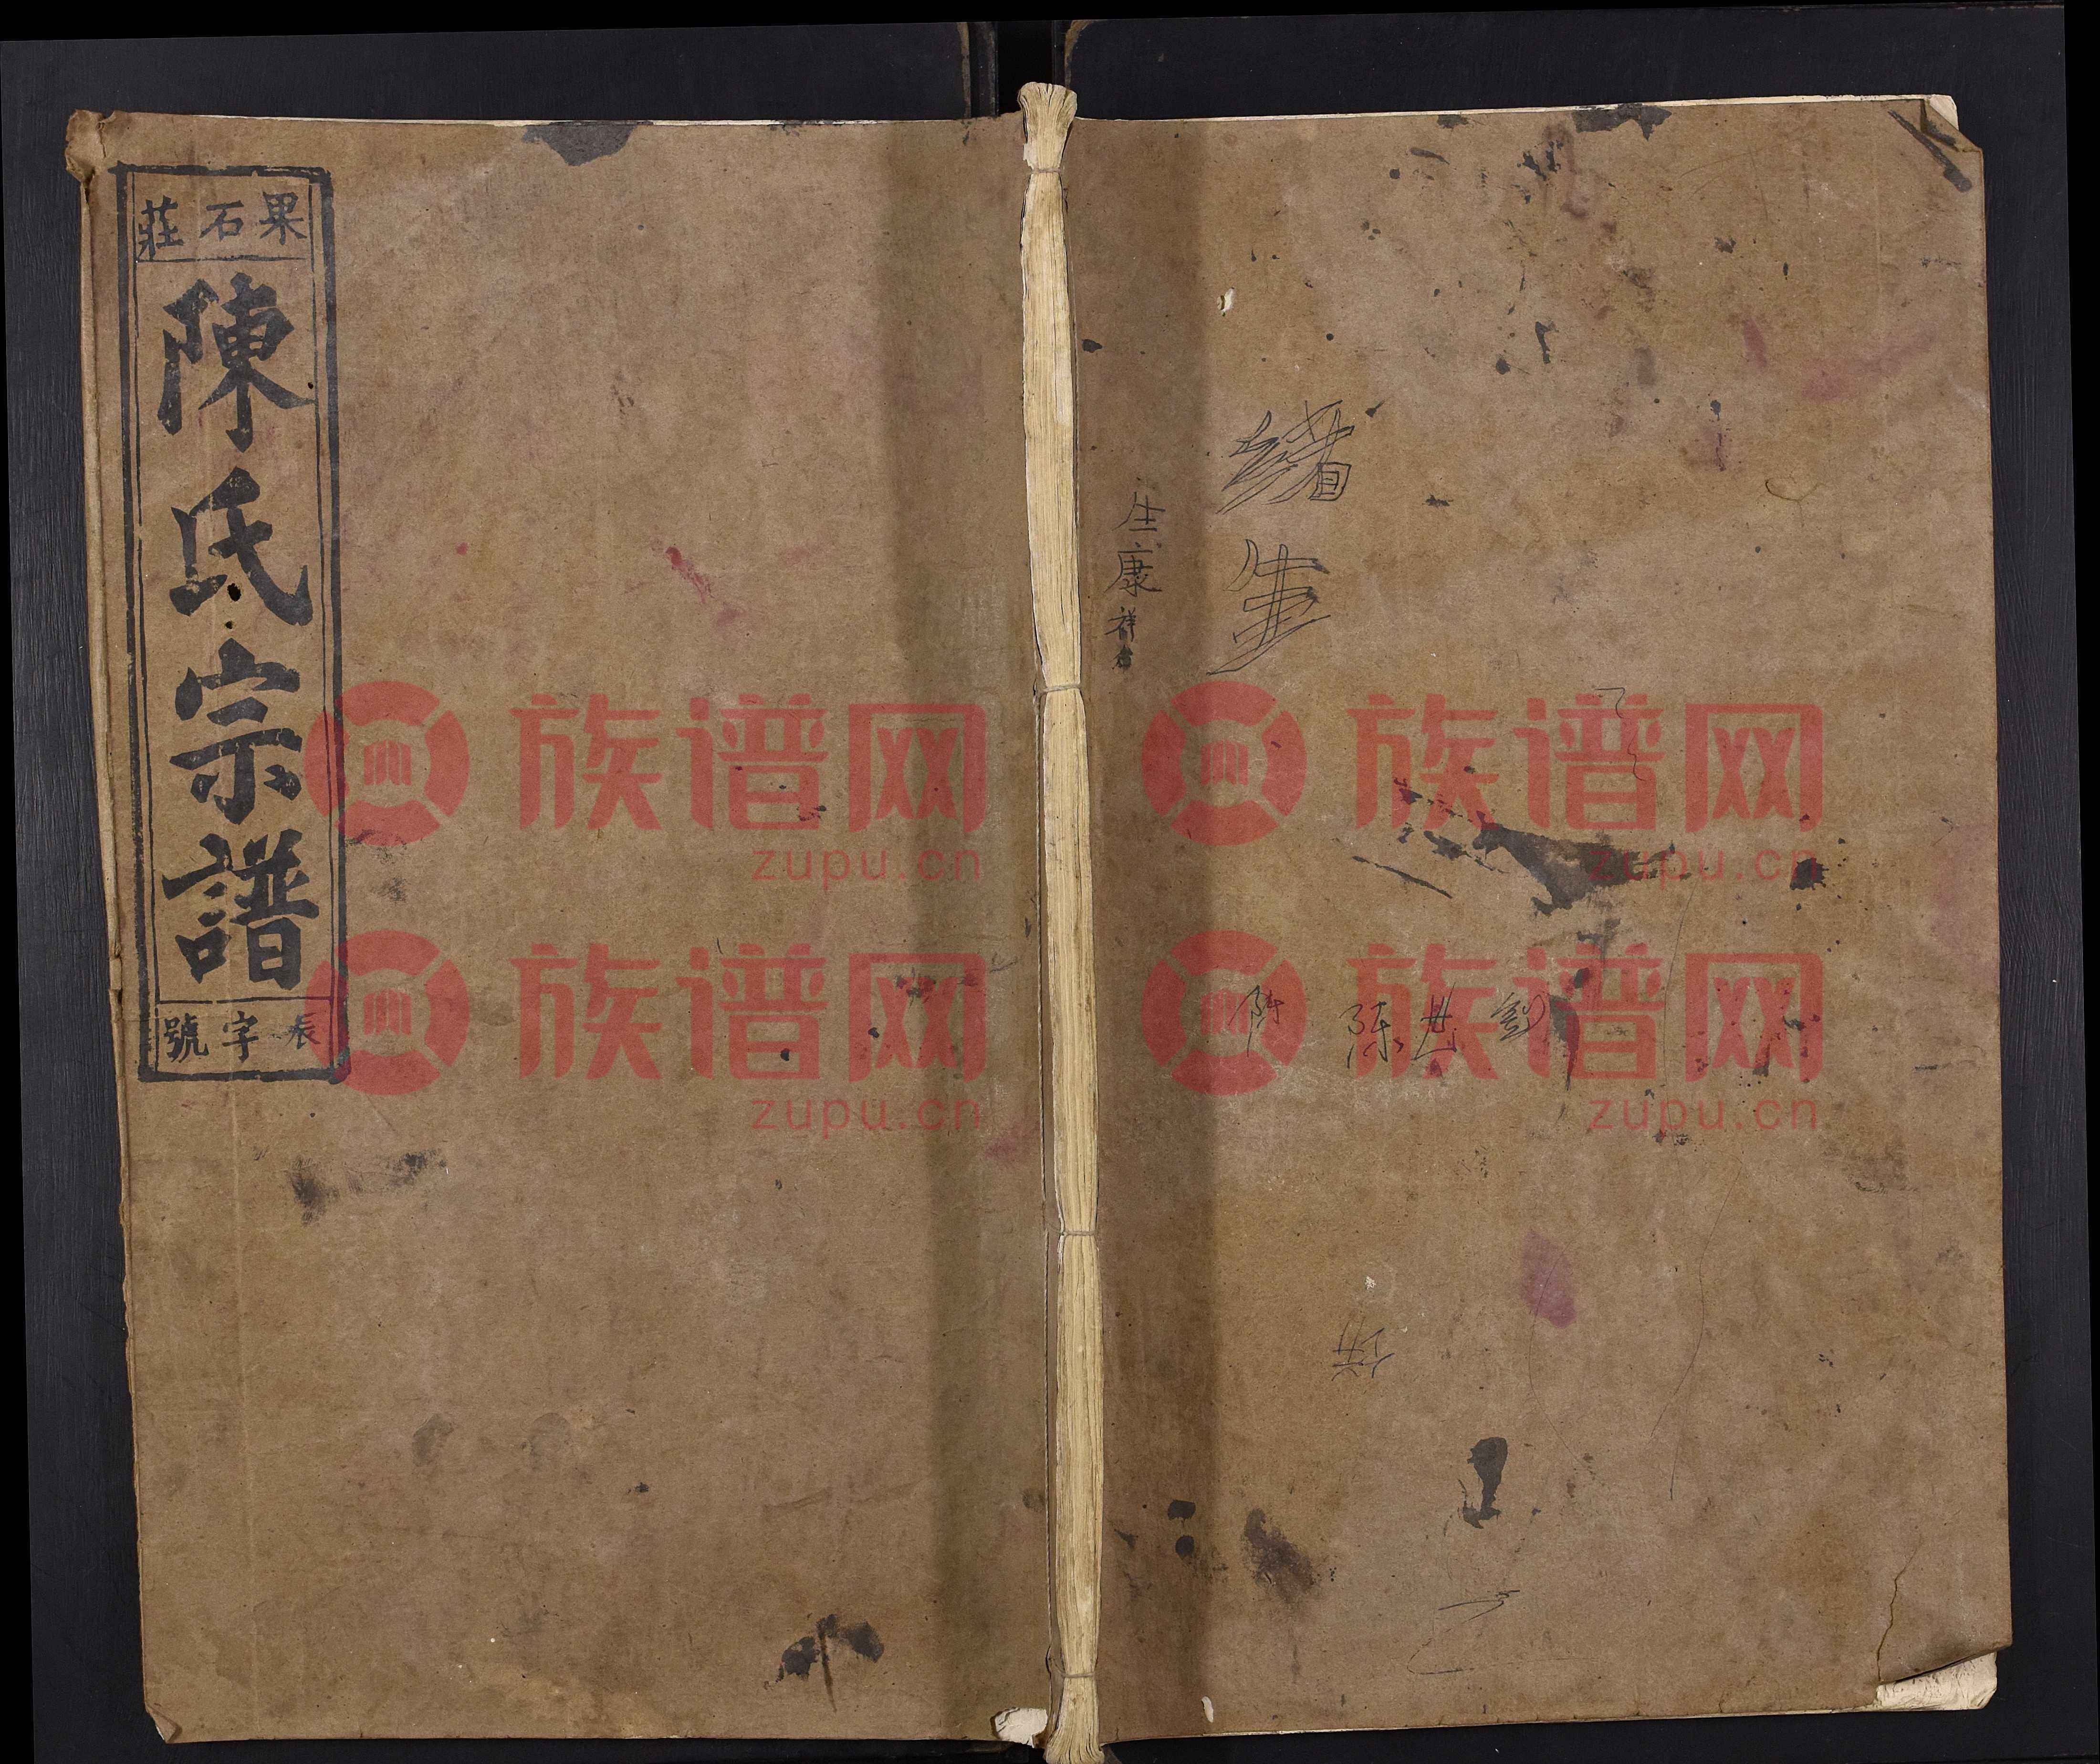 果石莊
陳氏宗譜
辰字號
生康祥
緒生
陈 陈世劉
族谱网
zupu.cn
族谱网
zupu.cn
族谱网
zupu.cn
族谱网
zupu.cn